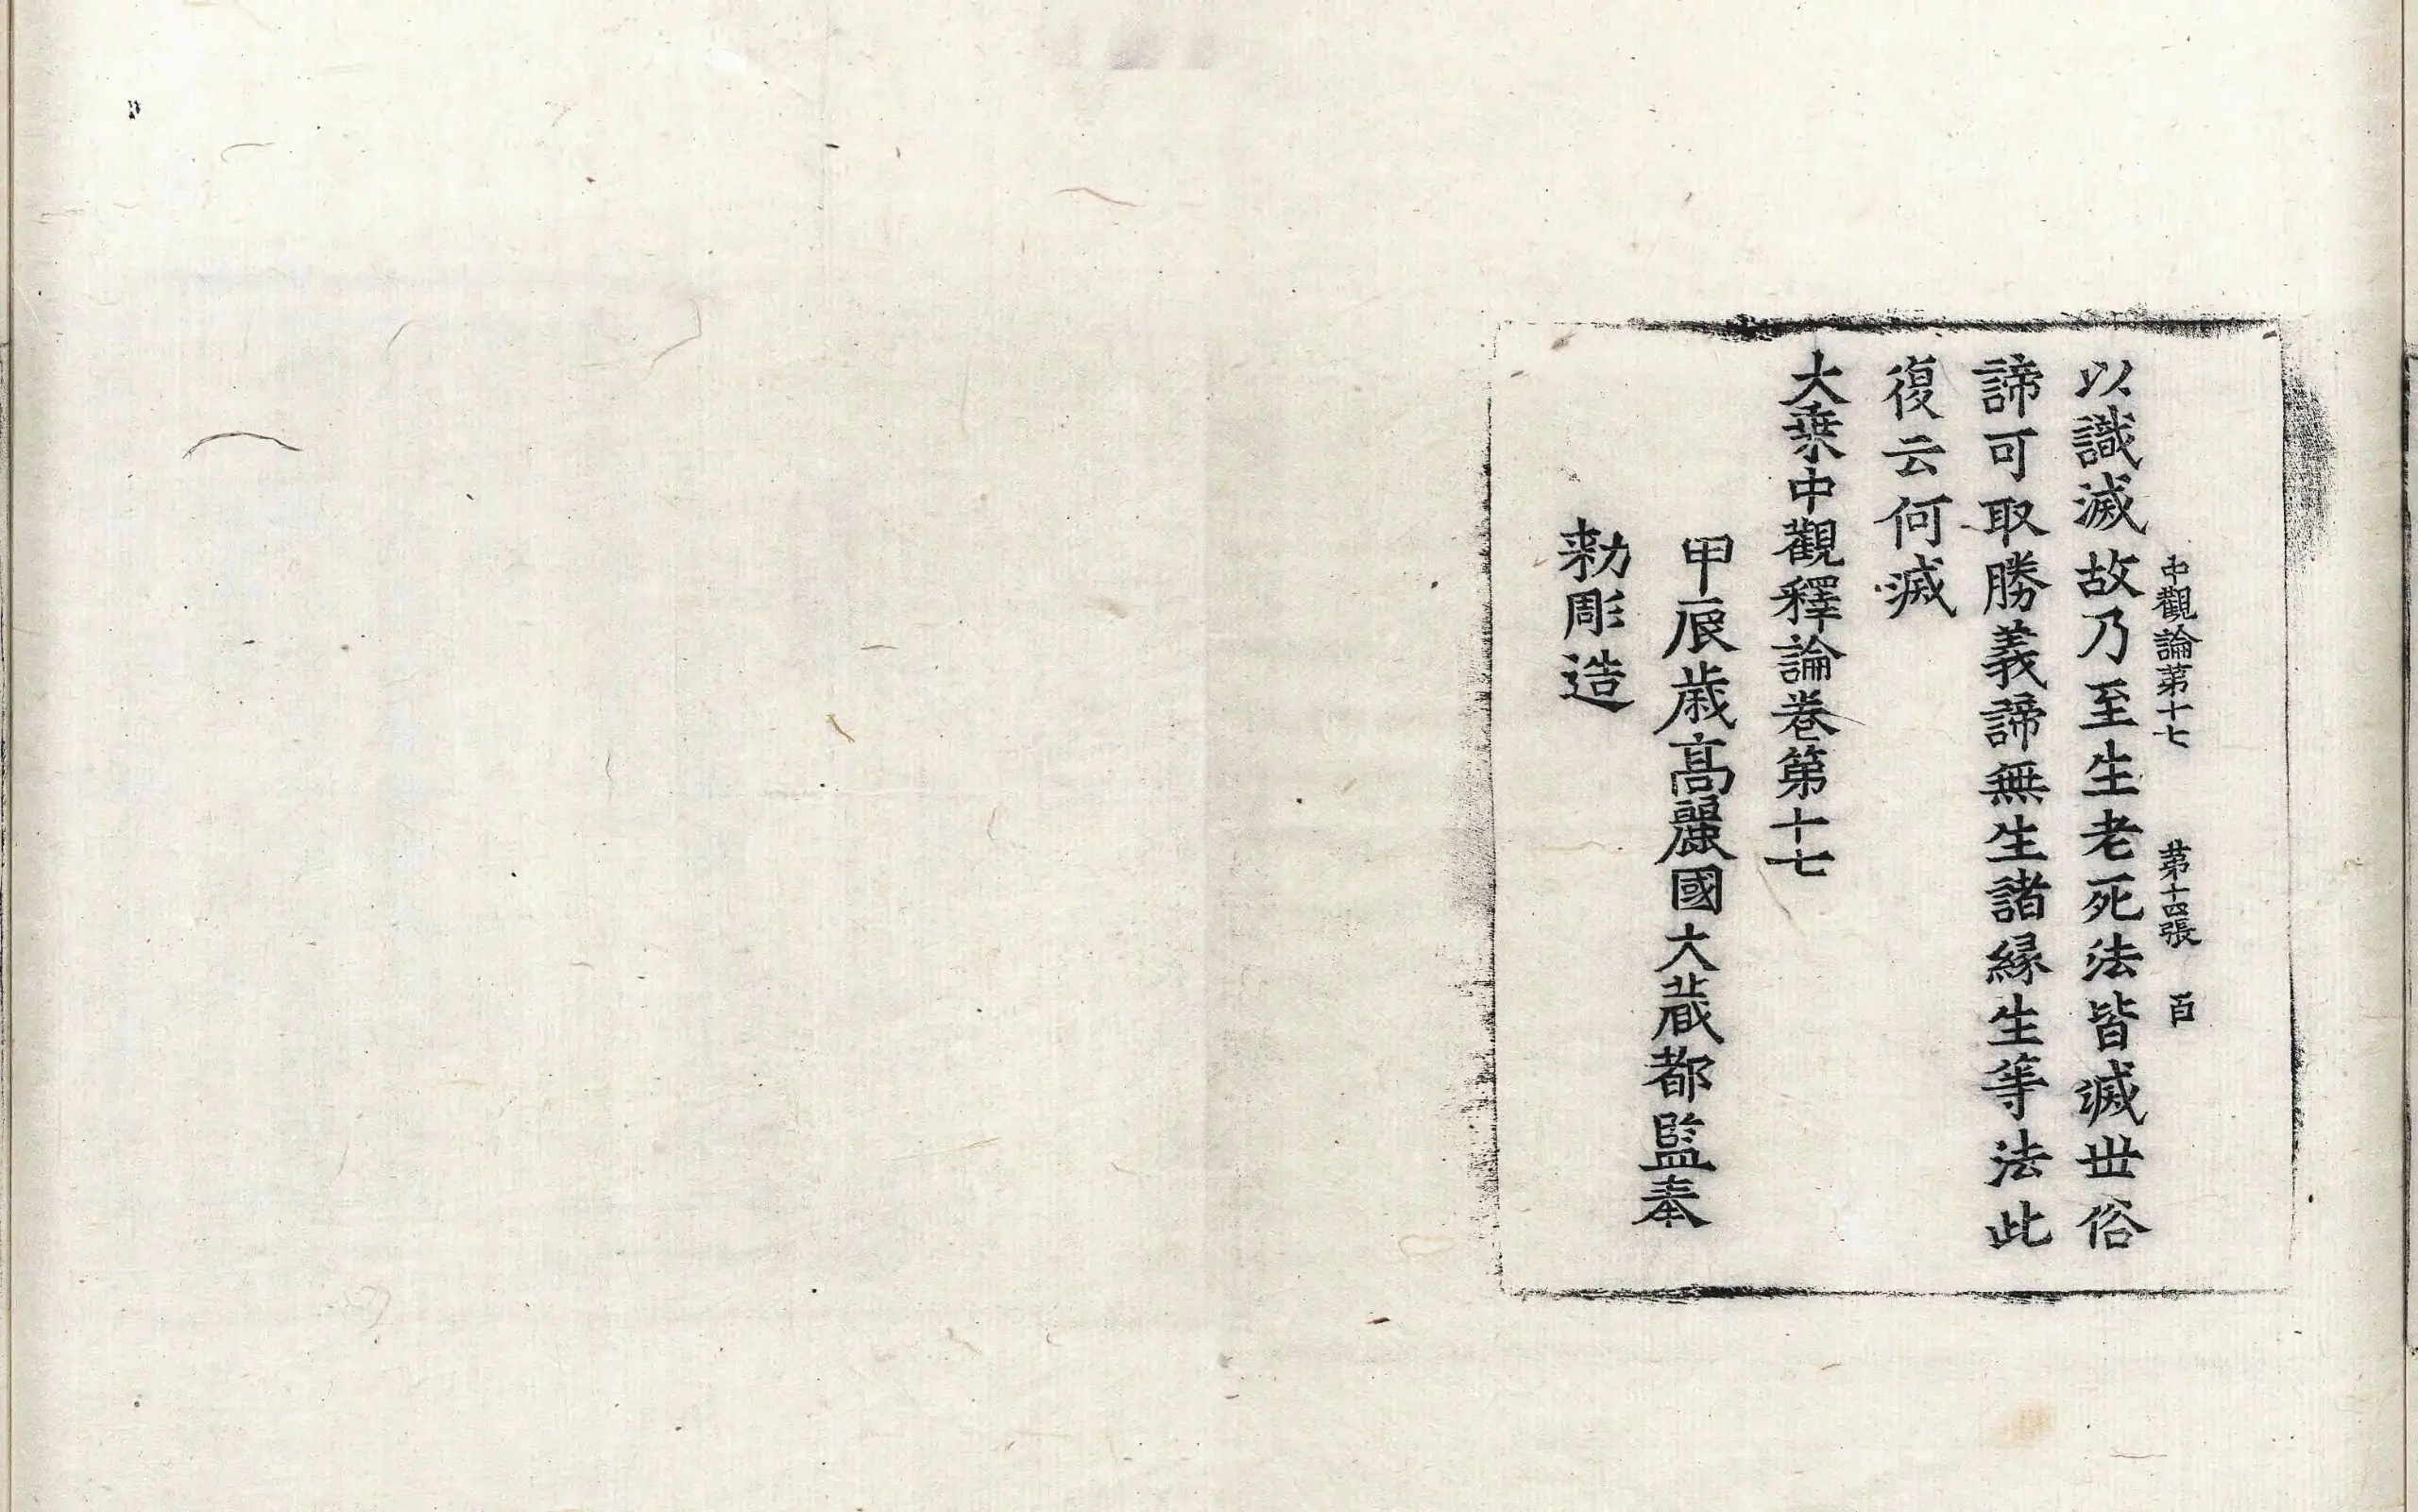 中觀論第十七 第十四張 百
以識滅故乃至生老死法皆滅世俗
諦可取勝義諦無生諸緣生等法此
復云何滅
大乘中觀釋論卷第十七
甲辰歲高麗國大藏都監奉
勅彫造